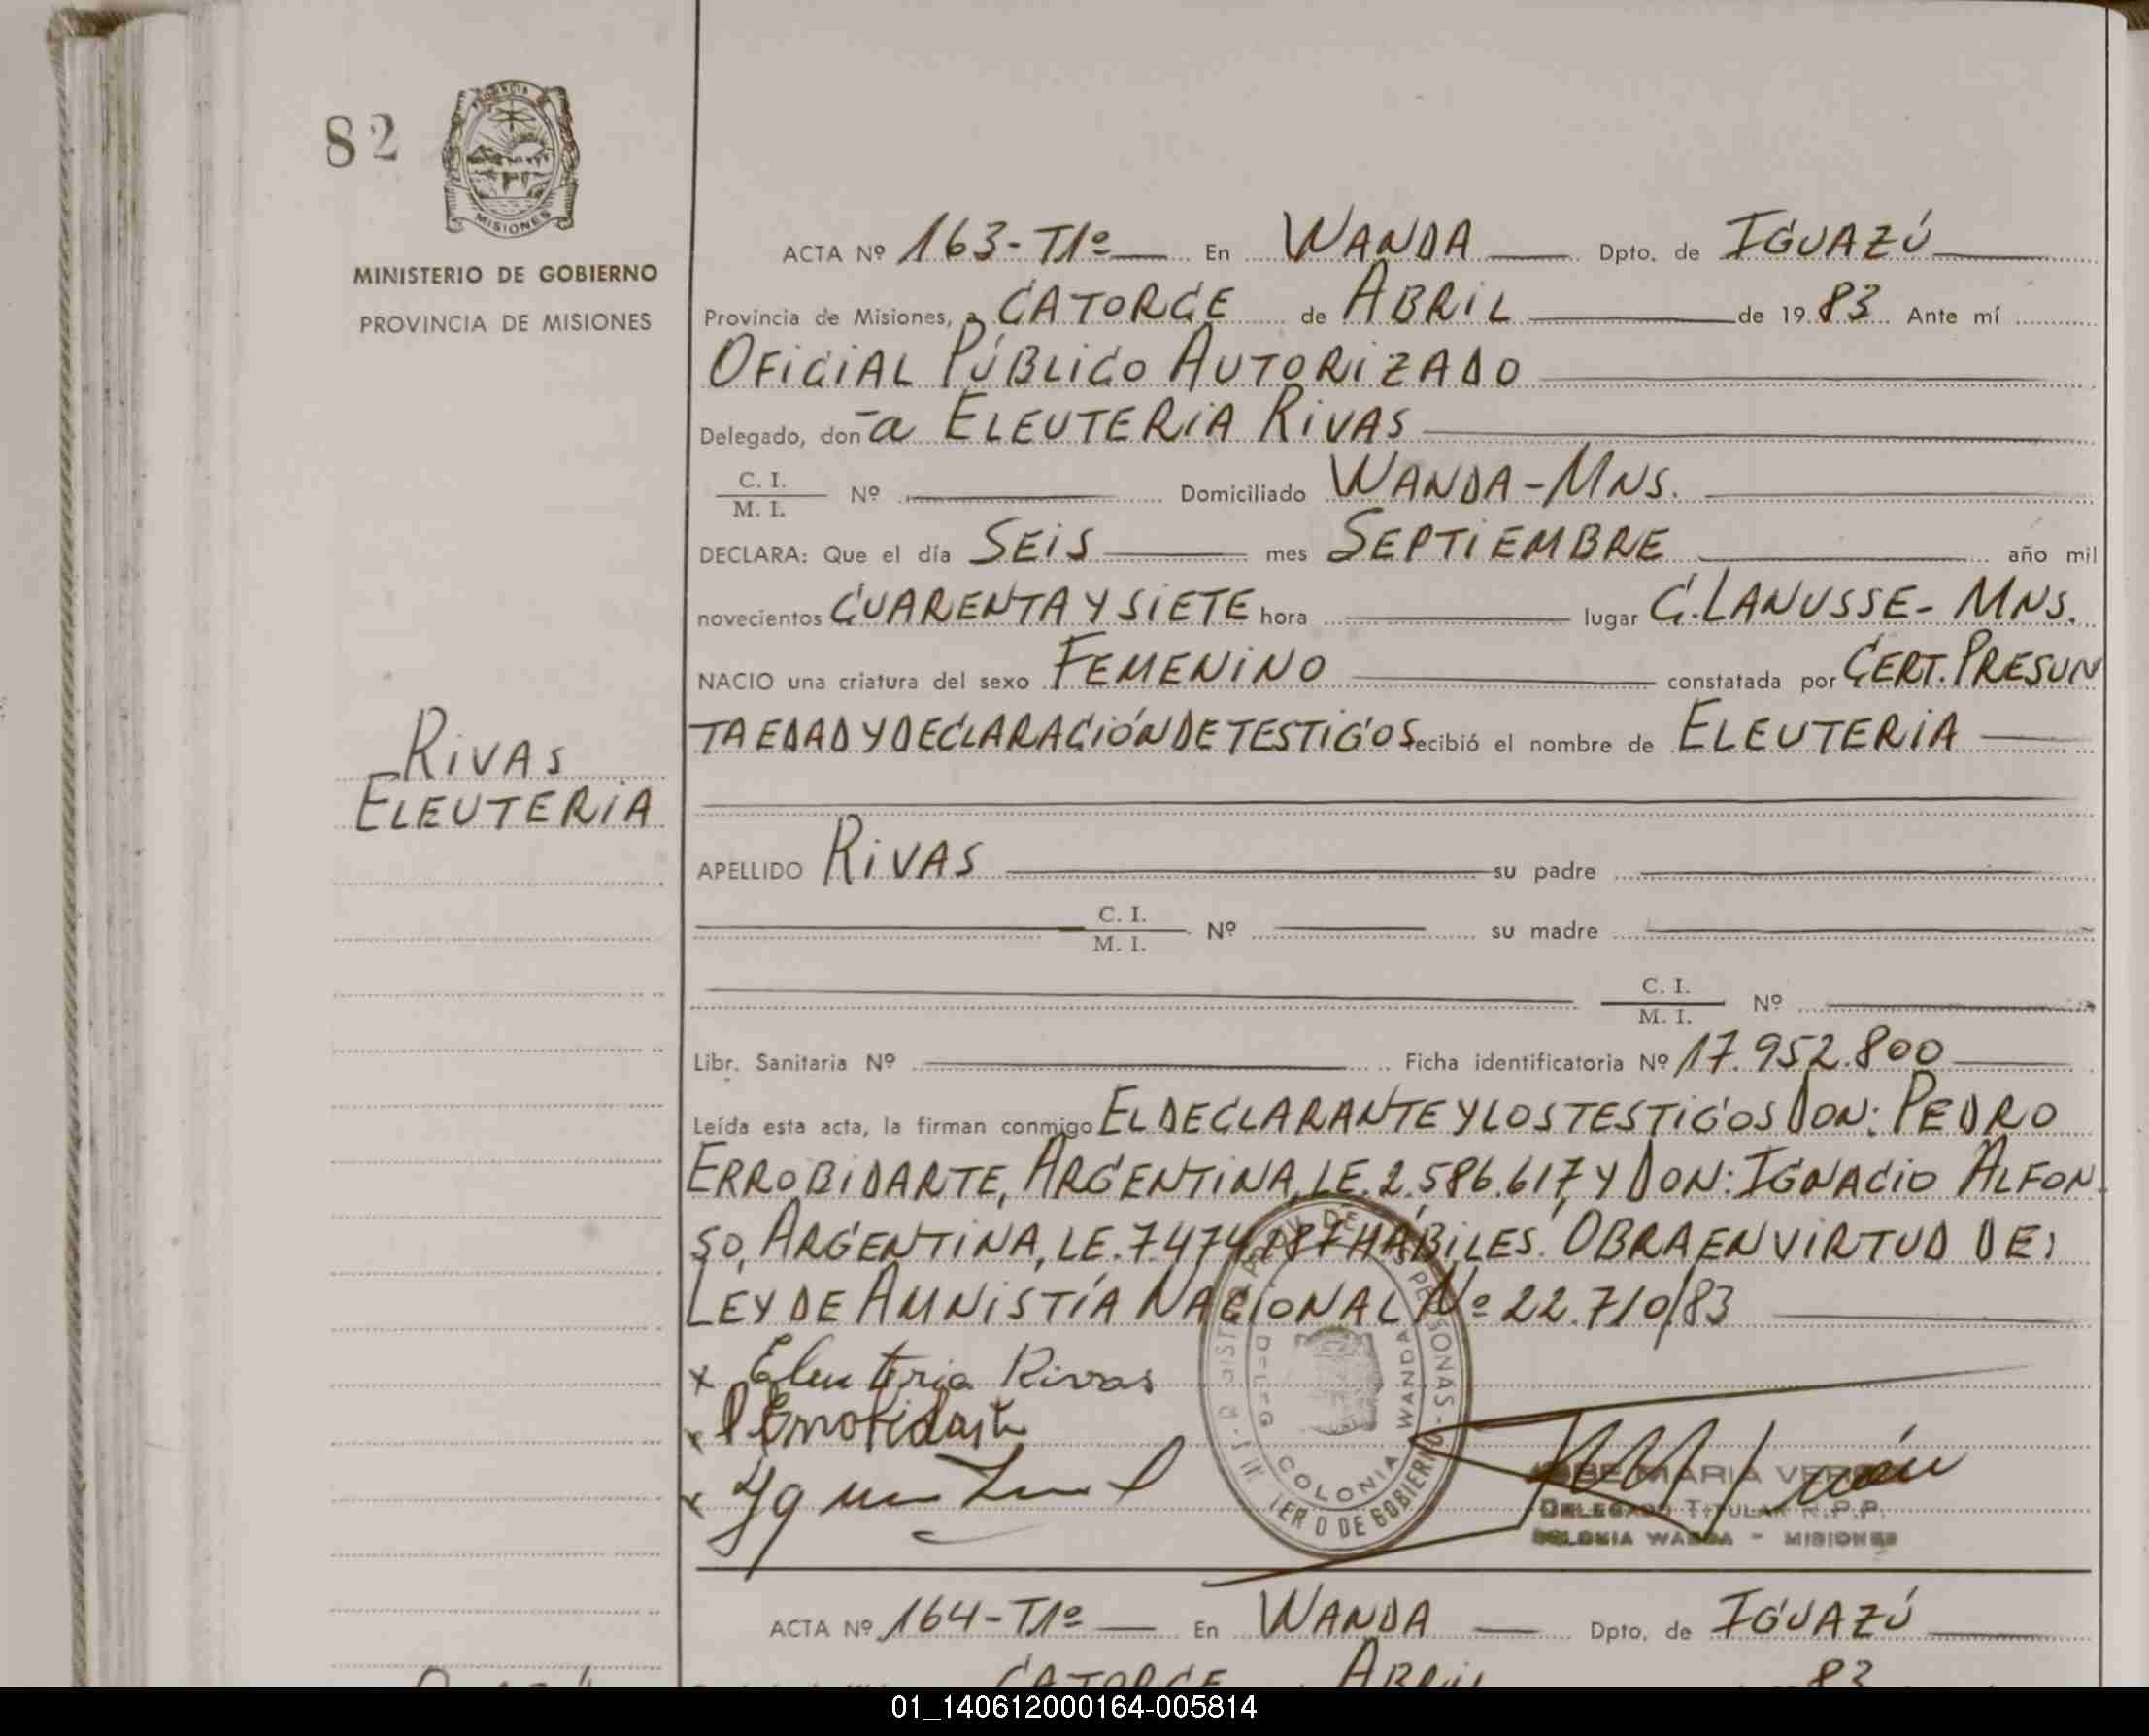 82
PROVINCIA DE
MISIONES
MINISTERIO DE GOBIERNO
PROVINCIA DE MISIONES
RIVAS
ELEUTERIA
ACTA Nº 163-T1º En WANDA Dpto. de IGUAZÚ
Provincia de Misiones, a CATORCE de ABRIL de 1983 Ante mí
OFICIAL PÚBLICO AUTORIZADO
Delegado, don-a ELEUTERIA RIVAS
C. I.
M. I. Nº Domiciliado WANDA-MNS.
DECLARA: Que el día SEIS mes SEPTIEMBRE año mil
novecientos CUARENTA Y SIETE hora lugar C. LANUSSE- MNS.
NACIO una criatura del sexo FEMENINO constatada por CERT. PRESUN
TA EDAD Y DECLARACIÓN DE TESTIGOS ecibió el nombre de ELEUTERIA
APELLIDO RIVAS su padre
C. I.
M. I. Nº su madre
C. I.
M. I. Nº
Libr. Sanitaria Nº Ficha identificatoria Nº 17.952.800
Leída esta acta, la firman conmigo EL DECLARANTE Y LOS TESTIGOS DON: PEDRO
ERROBIDARTE, ARGENTINA, LE. 2.586.617 Y DON: IGNACIO ALFON
SO, ARGENTINA, LE. 7.474.187 HÁBILES. OBRA EN VIRTUD DE:
LEY DE AMNISTÍA NACIONAL Nº 22.710/83
x Eleuteria Rivas
x P Errobidarte
x
PERSONAS - MINISTERIO DE GOBIERNO
DELEG COLONIA WANDA
MARIA
DELEGADO TITULAR R.P.P.
COLONIA WANDA - MISIONES
ACTA Nº 164-T1º En WANDA Dpto. de IGUAZÚ
CATORCE ABRIL 83
01_140612000164-005814